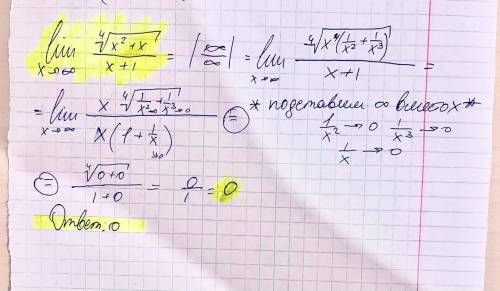 lim x→∞ ⁴√(x² + x) / (x + 1) = |∞/∞| = lim x→∞ ⁴√(x⁴(1/x² + 1/x³)) / (x + 1) =
= lim x→∞ x ⁴√(1/x²→0 + 1/x³→0) / x(1 + 1/x→0) = * подставим ∞ вместо x *
1/x² → 0 1/x³ → 0
1/x → 0
= ⁴√(0+0) / (1+0) = 0/1 = 0
Ответ: 0